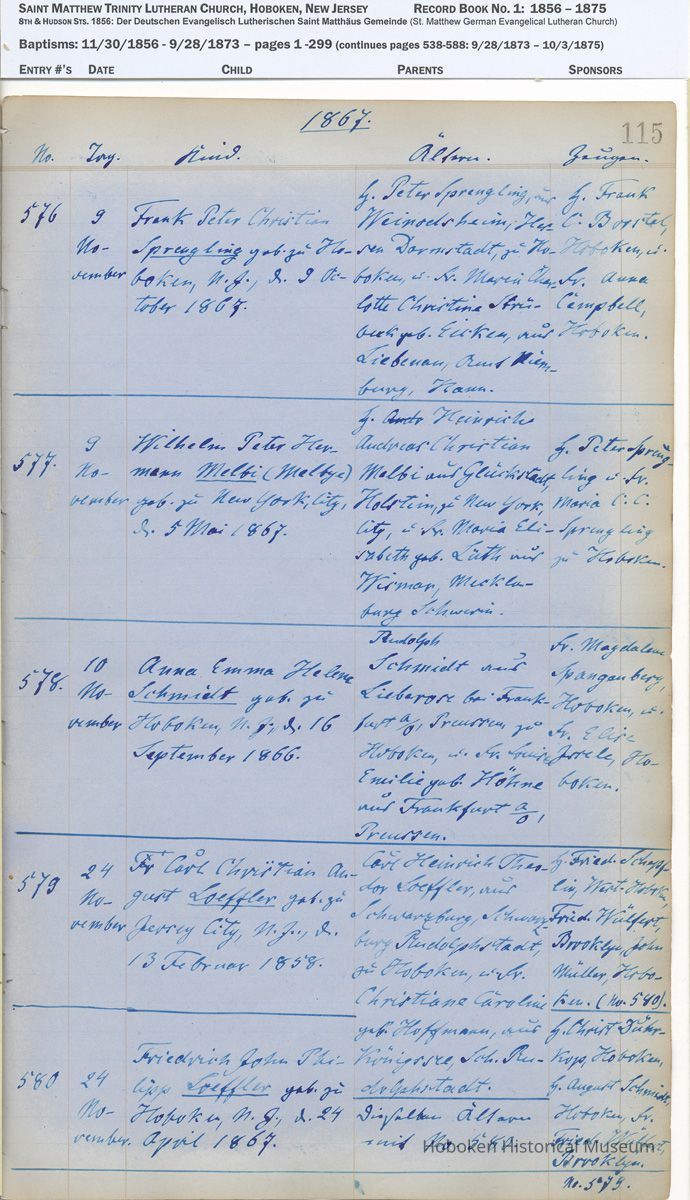 SAINT MATTHEW TRINITY LUTHERAN CHURCH, HOBOKEN, NEW JERSEY RECORD BOOK NO. 1: 1856 – 1875
8TH & HUDSON STS. 1856: Der Deutschen Evangelisch Lutherischen Saint Matthäus Gemeinde (St. Matthew German Evangelical Lutheran Church)
Baptisms: 11/30/1856 - 9/28/1873 – pages 1 -299 (continues pages 538-588: 9/28/1873 – 10/3/1875)
ENTRY #'S DATE CHILD PARENTS SPONSORS
1867.
115
No. Tag. Kind. Ältern. Zeugen.
576
9
No-
vember
Frank Peter Christian
Sprengling geb. zu Ho-
boken, N. J., d. 9 Oc-
tober 1867.
H. Peter Sprengling, aus
Weinolsheim, Hes-
sen Darmstadt, zu Ho-
boken, u. Fr. Maria Char-
lotte Christine Strü-
geb. Eicken, aus
Liebenau, Amt Nien-
burg, Hann.
H. Frank
C. Borstel,
Hoboken, u.
Fr. Anna
Campbell,
Hoboken.
577.
9
No-
vember
Wilhelm Peter Her-
mann Melbi (Melbye)
geb. zu New York, City,
d. 5 Mai 1867.
H. Heinrich
Andreas Christian
Melbi aus Glückstadt,
Holstein, zu New York,
City, u. Fr. Maria Eli-
sabeth geb. Lüth aus
Wismar, Mecklen-
burg Schwerin.
H. Peter Spreng-
ling u. Fr.
Maria C. C.
Sprengling
zu Hoboken.
578.
10
No-
vember
Anna Emma Helene
Schmidt geb. zu
Hoboken, N. J., d. 16
September 1866.
Rudolph
Schmidt aus
Lieberose bei Frank-
furt a/o, Preussen, zu
Hoboken, u. Fr. Louise
Emilie geb. Höhne
aus Frankfurt a/o,
Preussen.
Fr. Magdalena
Spangenberg,
Hoboken, u.
Fr. Elise
Ho-
boken.
579
24
No-
vember
Fr Carl Christian Au-
gust Loeffler geb. zu
Jersey City, N. J., d.
13 Februar 1858.
Carl Heinrich Theo-
dor Loeffler, aus
Schwarzburg, Schwarz-
burg Rudolphstadt,
zu Hoboken, u. Fr.
Christiane Caroline
geb. Hoffmann, aus
Königssee, Sch. Ru-
dolphstadt.
H. Fried. Schöpf-
lin, West-Hoboken,
Fried. Wülfert,
Brooklyn, John
Müller, Hobo-
ken. (No. 580).
580
24
No-
vember.
Friedrich John Phi-
lipp Loeffler geb. zu
Hoboken, N. J., d. 24
April 1867.
Dieselben Ältern
H. Christ Dühr-
kop, Hoboken,
H. August Schmidt,
Hoboken, Fr.
Brooklyn.
No. 579.
Hoboken Historical Museum